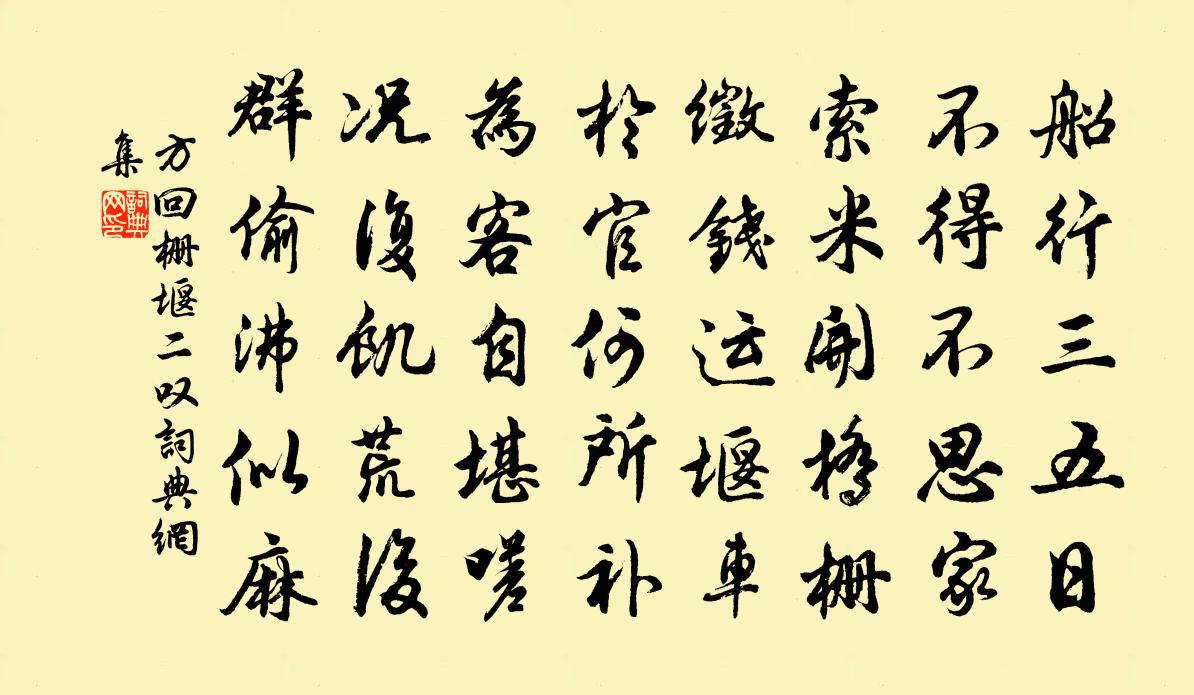 船行三五日
不得不思家
索米開橋栅
徵錢运堰車
於官何所补
為客自堪嗟
况復飢荒後
群偷沸似麻
方回栅堰二叹詞典網
集
詞典网印